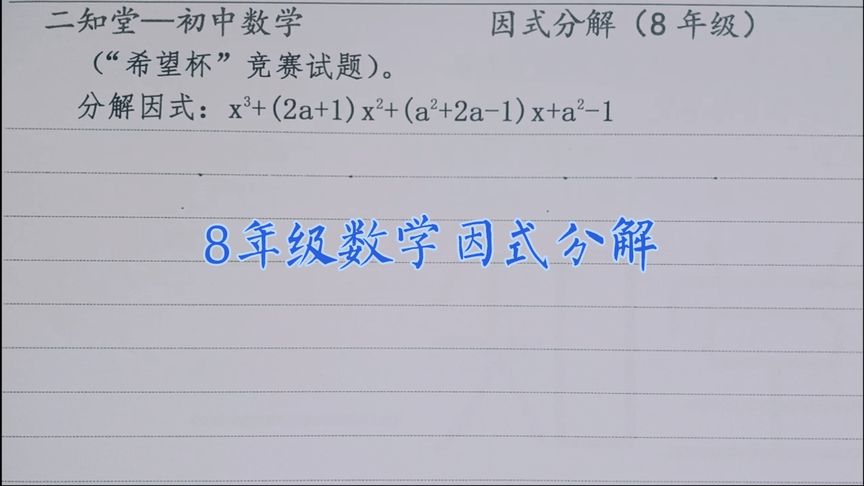 二知堂—初中数学 因式分解（8 年级）
（“希望杯”竞赛试题）。
分解因式：x³+(2a+1)x²+(a²+2a-1)x+a²-1
8年级数学因式分解